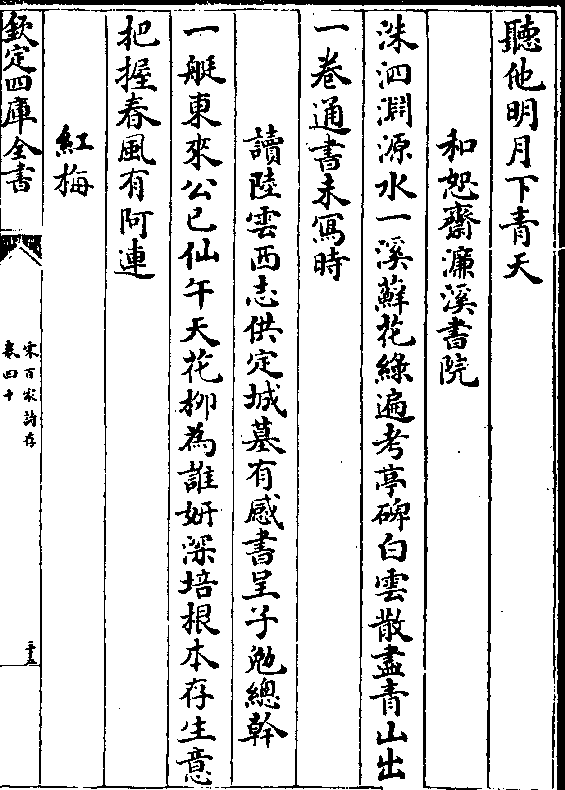 聽他明月下青天
和恕齋濂溪書院
洙泗淵源水一溪蘚花綠遍考亭碑白雲散盡青山出
一卷通書未寫時
讀陸雲西志供定城墓有感書呈子勉總幹
一艇東來公已仙午天花柳為誰妍深培根本存生意
把握春風有阿連
紅梅
欽定四庫全書
宋百家詩存
卷四十